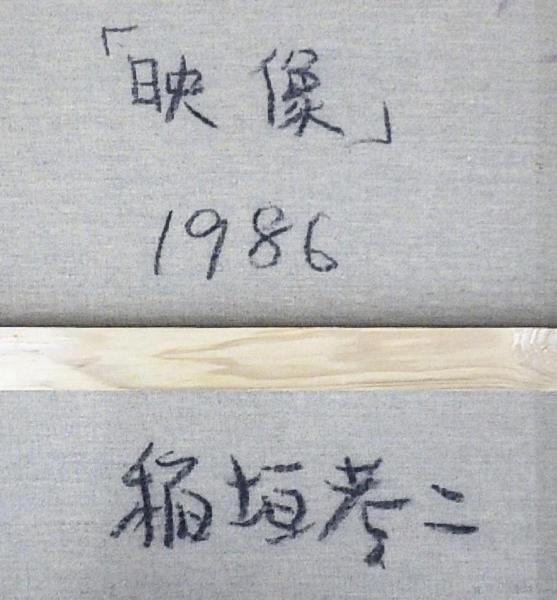 「映像」
1986
稲垣考二